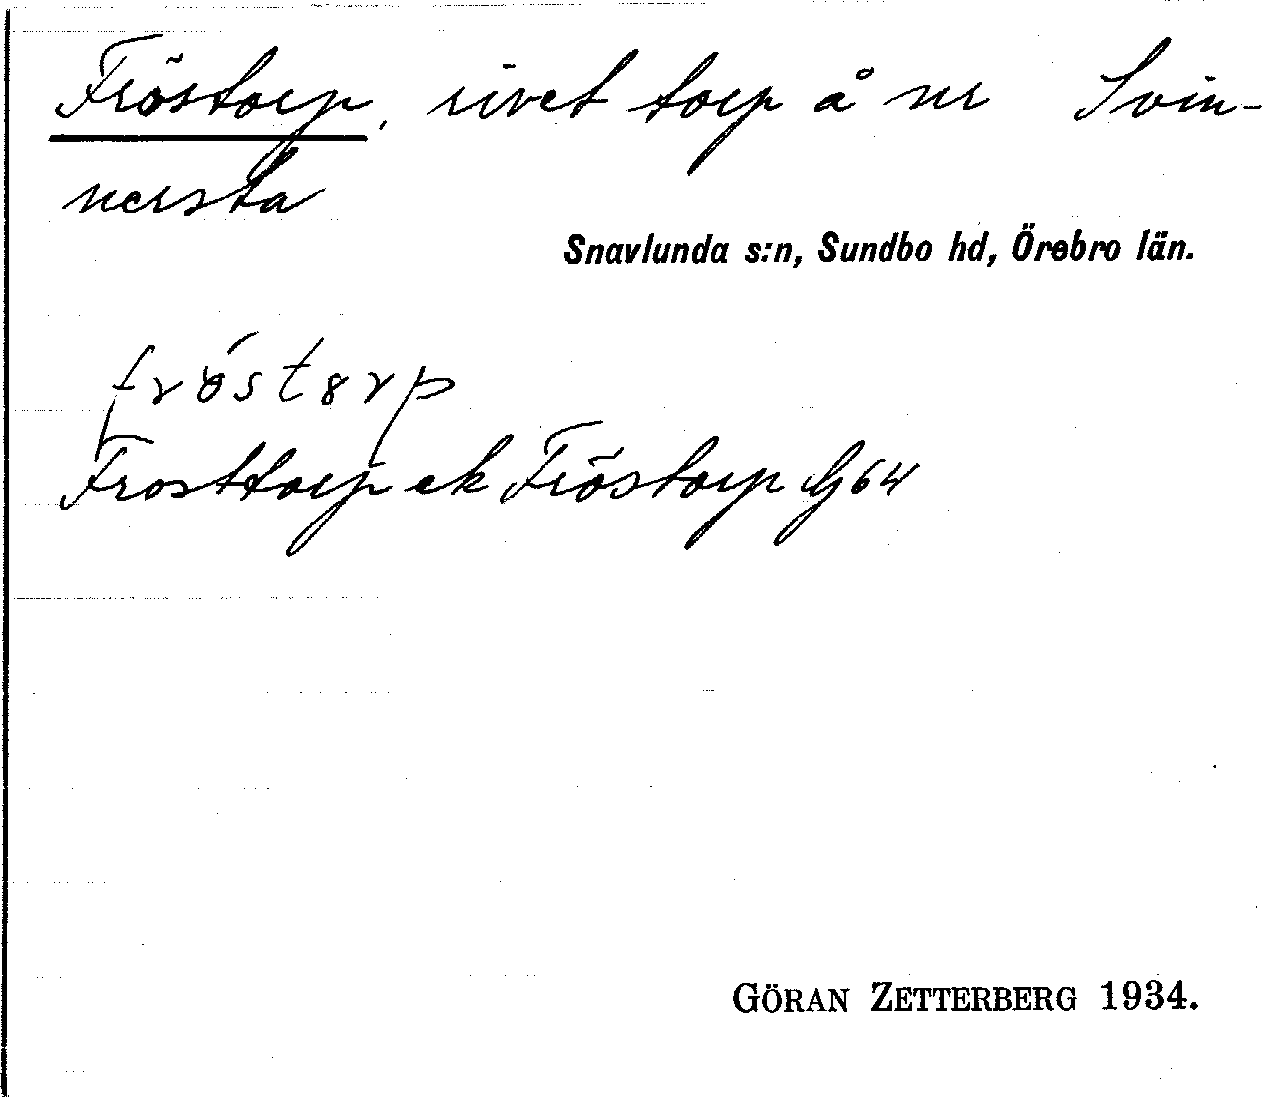 Fröstorp, rivet torp å nr Svin-
nersta
Snavlunda s:n, Sundbo hd, Örebro län.
fröstorp
Frosttorp ek Fröstorp G64
GÖRAN ZETTERBERG 1934.